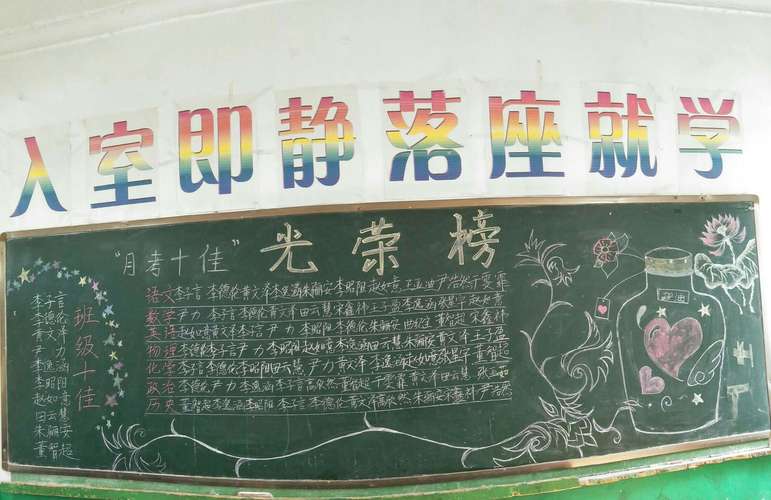 入室即静落座就学
"月考十佳" 光荣榜
班级十佳
李子言
李德伦
黄文泽
尹力
李逸涵
李昭阳
赵如意
田云慧
朱丽安
董智超
语文 李子言 李德伦 黄文泽 李逸涵 朱丽安 李昭阳 赵如意 王亚迪 尹浩然
数学 尹力 李子言 李德伦 黄文泽 田云慧 王子盈 李逸涵 赵如意
英语 赵如意 黄文泽 李子言 尹力 李昭阳 李德伦 朱丽安 田云慧 董智超
物理 李德伦 李子言 尹力 李昭阳 赵如意 李逸涵 田云慧 朱丽安 黄文泽 王子盈
化学 李子言 李德伦 李昭阳 田云慧 尹力 黄文泽 李逸涵 赵如意 董智超
政治 李德伦 尹力 李逸涵 李子言 董智超 黄文泽 田云慧
历史 董智超 李逸涵 李昭阳 李子言 李德伦 黄文泽 朱丽安 尹浩然